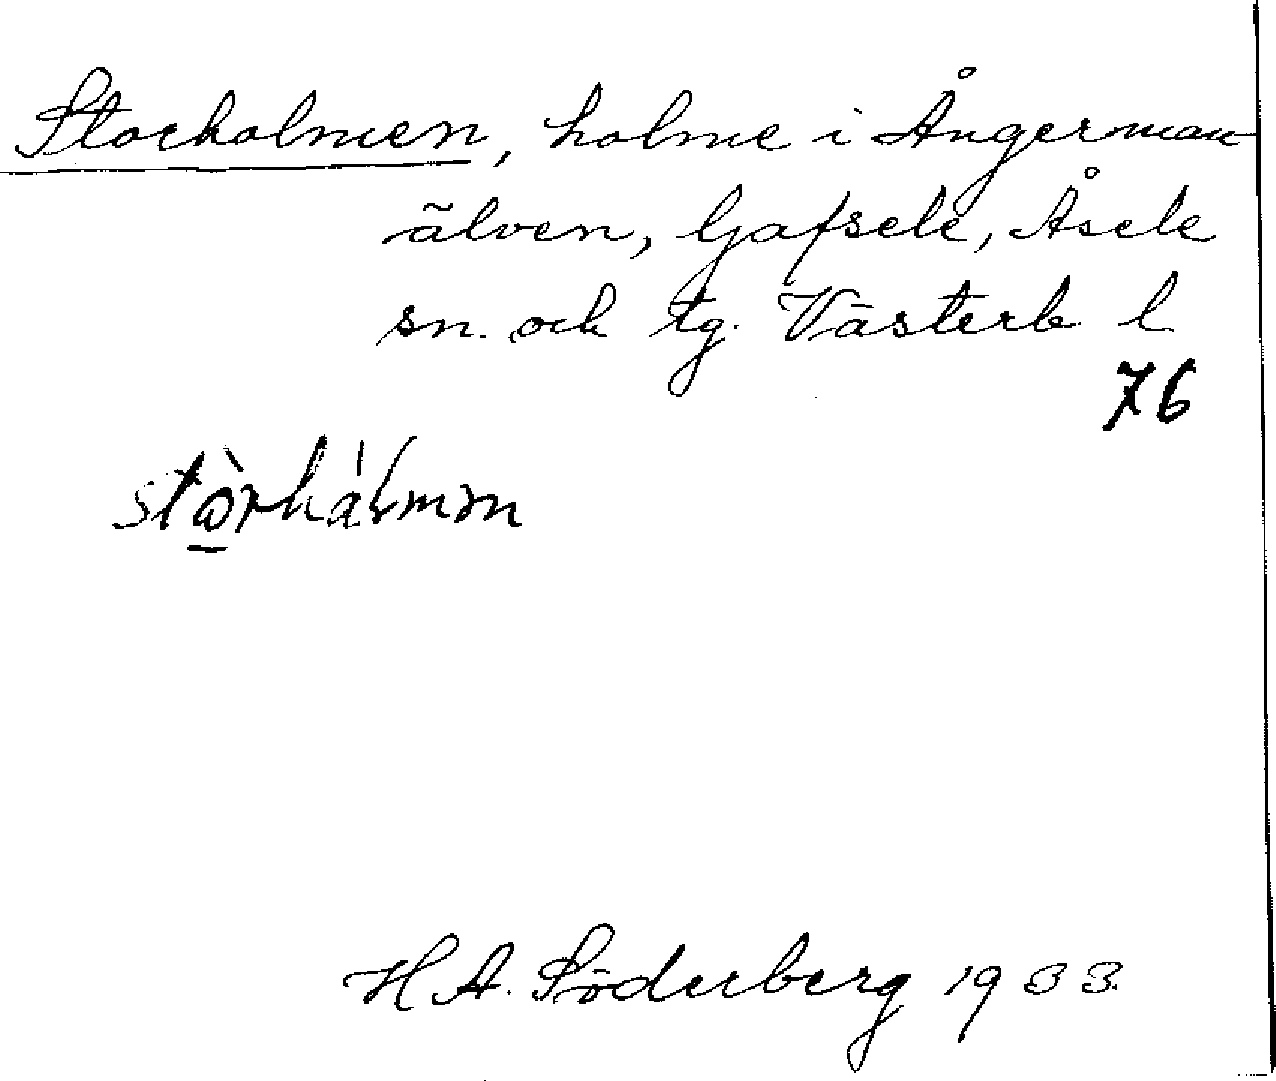 Storholmen, holme i Ångerman-
älven, Gafsele, Åsele
sn. och tg. Västerb. l.
76
stòrhálmm
H A. Söderberg 1933.